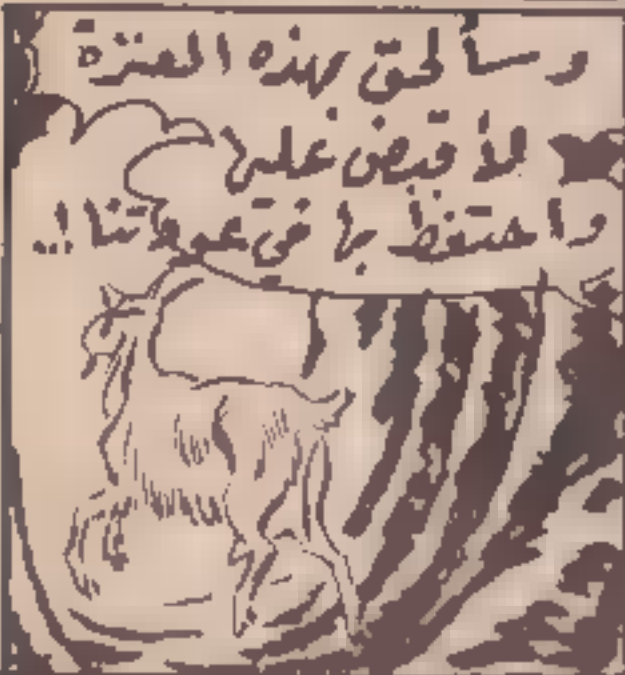 وسألحق بهذه العنزة
لأقبض عليها
واحتفظ بها في عودتنا!..